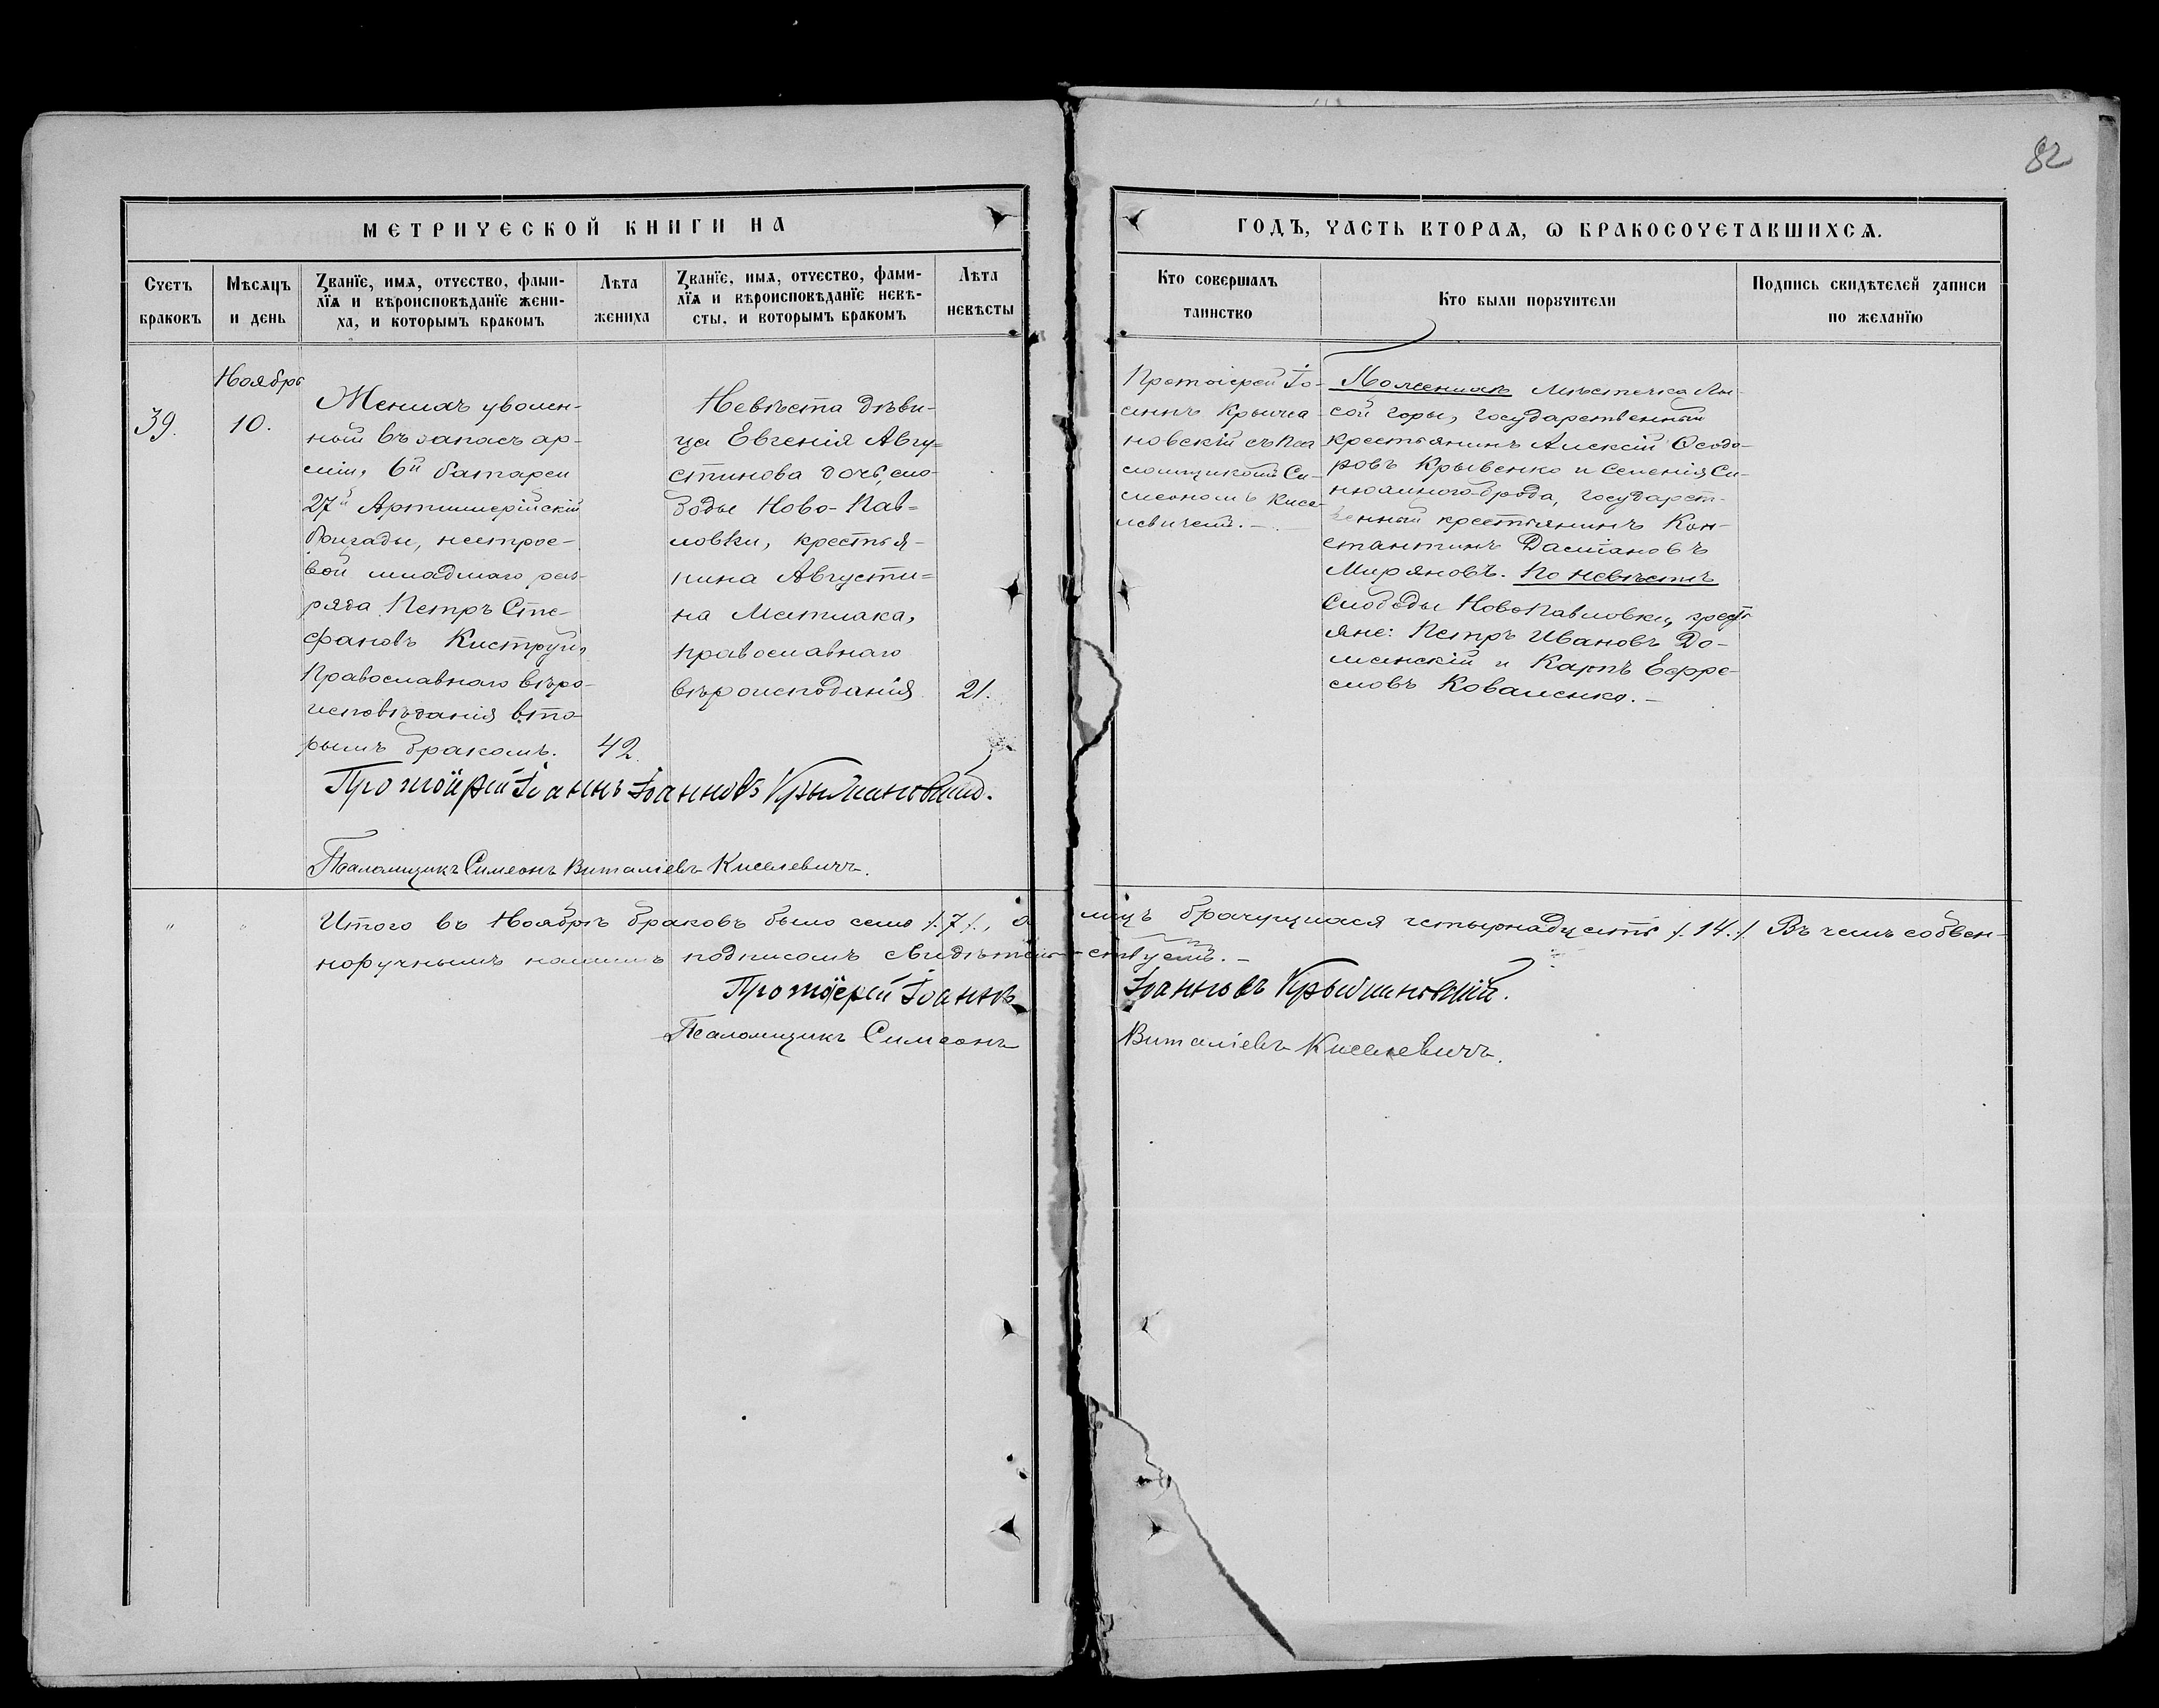 82
МЕТРИЧЕСКОЙ КНИГИ НА
ГОДЪ, ЧАСТЬ ВТОРАѦ, Ѡ БРАКОСОЧЕТАВШИХСѦ.
Счетъ
браковъ
Мѣсѧцъ
и день
Званїе, имѧ, отчество, фами-
лїѧ и вѣроисповѣданїе жени-
ха, и которымъ бракомъ
Лѣта
жениха
Званїе, имѧ, отчество, фами-
лїѧ и вѣроисповѣданїе невѣ-
сты, и которымъ бракомъ
Лѣта
невѣсты
Кто совершалъ
таинство
Кто были порꙋчители
Подпись свидѣтелей записи
по желанїю
39.
Ноябрь
10.
Женихъ уволен-
ный въ запасъ ар-
міи, 6й батареи
27й Артиллерійскій
бригады, нестрое-
вой младшаго раз-
ряда Петръ Сте-
фановъ Киструй
Православнаго вѣро-
исповѣданія вто-
рымъ бракомъ.
42.
Невѣста дѣви-
ца Евгенія Авгу=
стинова дочь, сло-
боды Ново-Пав=
ловки, крестья-
нина Августи=
на Матлака,
православнаго
вѣроисподанія
21.
Протоіерей Іо-
аннъ Крыжа-
новскій съ Пса-
ломщикомъ Си-
меономъ Кисе-
левичемъ.-
По женихѣ Мѣстечка Лы-
сой горы, государственный
крестьянинъ Алексій Ѳеодо-
ровъ Крывенко и селенія Си-
нюхиного-брода, государст-
венный крестьянинъ Кон-
стантинъ Даміановъ
Миряновъ. По невѣстѣ
Слободы НовоПавловки, кресть-
яне: Петръ Ивановъ До-
манскій и Карпъ Ефре-
мовъ Коваленко.-
Протоїерей Іоаннъ Іоанновъ Крыжановскій.
Псаломщикъ Симеонъ Виталіевъ Киселевичъ.
" " Итого въ Ноябрѣ браковъ было семь /.7/., а лицъ брачущихся четырнадцать /.14./ Въ чемъ собвен-
норучнымъ нашимъ подписомъ свидѣтель-ствуемъ.-
Протоїерей Іоаннъ Іоанновъ Крыжановскій.
Псаломщикъ Симеонъ Виталіевъ Киселевичъ.